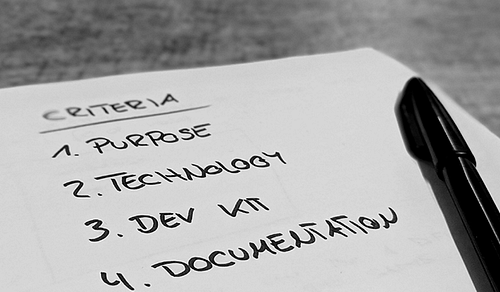 CRITERIA
1. PURPOSE
2. TECHNOLOGY
3. DEV KIT
4. DOCUMENTATION